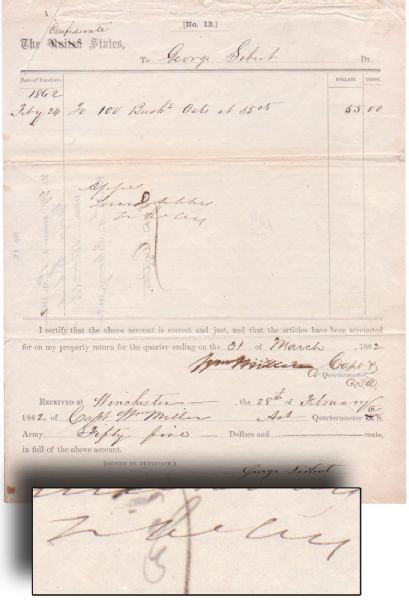 [No. 12.]
Confederate
The United States,
To George Sibert Dr.
Date of Purchase. DOLLARS. CENTS.
1862
Feby 24 To 100 Bush's Oats at 55 cts 55 00
I certify that the above account is correct and just, and that the articles have been accounted
for on my property return for the quarter ending on the 31 of March, 1862
Wm Miller Capt &
A Quartermaster.
CSA
Received at Winchester the 28th of February
1862, of Capt Wm Miller Act Quartermaster C.S.
Army, Fifty five Dollars and cents,
in full of the above account.
[SIGNED IN DUPLICATE.]
George Sibert